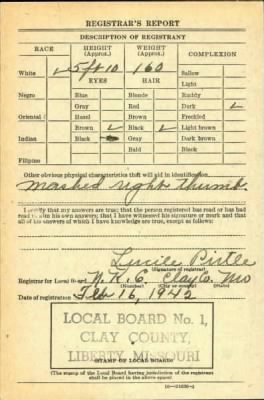 REGISTRAR'S REPORT
DESCRIPTION OF REGISTRANT
RACE HEIGHT (Approx.) WEIGHT (Approx.) COMPLEXION
White ✓ 5 ft 10 160 Sallow
EYES HAIR Light
Negro Blue Blonde Ruddy
Gray Red Dark ✓
Oriental Hazel Brown Freckled
Brown ✓ Black ✓ Light brown
Indian Black Gray Dark brown
Bald Black
Filipino
Other obvious physical characteristics that will aid in identification
mashed right thumb.
I certify that my answers are true; that the person registered has read or has had
read to him his own answers; that I have witnessed his signature or mark and that
all of his answers of which I have knowledge are true, except as follows:
Lucile Pirtle
(Signature of registrar)
Registrar for Local Board N. K. C. Clay Co. Mo
(Number) (City or county) (State)
Date of registration Feb 16, 1942
LOCAL BOARD No. 1,
CLAY COUNTY,
LIBERTY, MISSOURI
(STAMP OF LOCAL BOARD)
(The stamp of the Local Board having jurisdiction of the registrant
shall be placed in the above space)